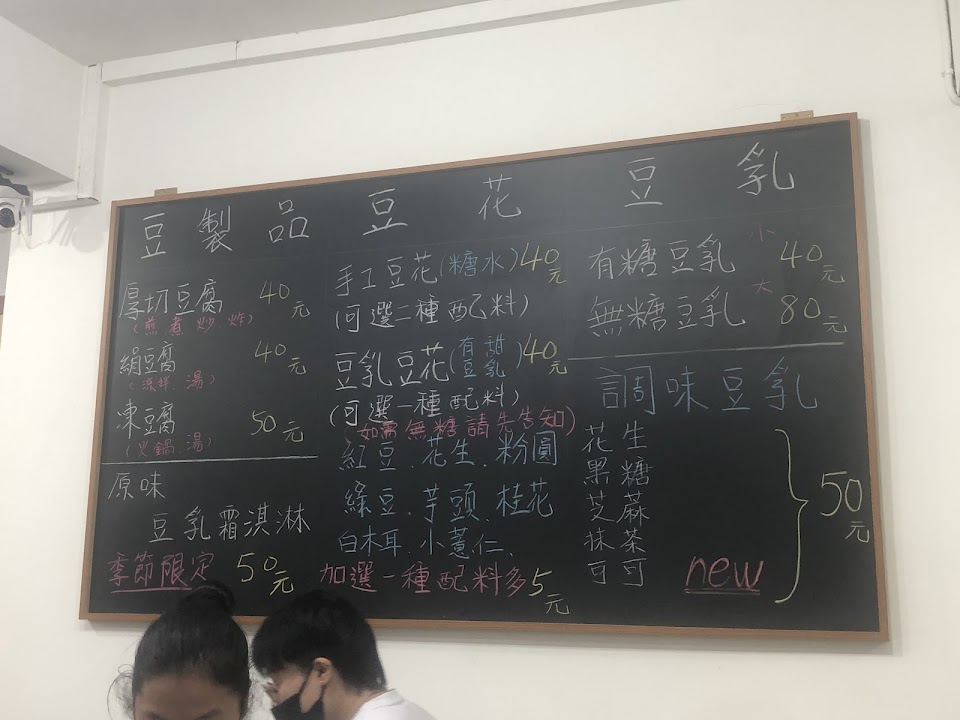 豆製品
厚切豆腐 40元
(煎.煮.炒.炸)
絹豆腐 40元
(涼拌.湯)
凍豆腐 50元
(火鍋.湯)
原味
豆乳霜淇淋
季節限定 50元
豆花
手工豆花(糖水)40元
(可選二種配料)
豆乳豆花(有甜豆乳)40元
(可選一種配料)
如需無糖請先告知)
紅豆.花生.粉圓
綠豆.芋頭.桂花
白木耳.小薏仁.
加選一種配料多5元
豆乳
有糖豆乳 小 40元
無糖豆乳 大 80元
調味豆乳
花生
黑糖
芝蔴
抹茶
可可
50元
new